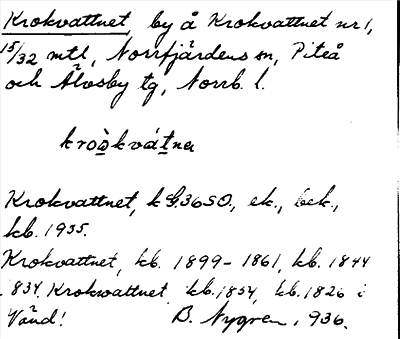 Krokvattnet, by å Krokvattnet nr 1,
15/32 mtl, Norrfjärdens sn, Piteå
och Älvsby tg, Norrb. l.
Krokvattnet, k 36 SO., ek., bek.,
kb. 1935.
Krokvattnet, kb. 1899-1861, kb. 1844
1834. Krokwattnet kb. 1834, kb. 1826 i
Vänd! B. Nygren, 1936.